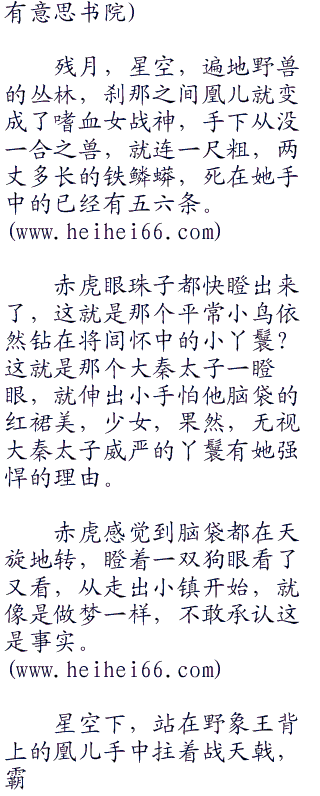 有意思书院)
残月，星空，遍地野兽
的丛林，刹那之间凰儿就变
成了嗜血女战神，手下从没
一合之兽，就连一尺粗，两
丈多长的铁鳞蟒，死在她手
中的已经有五六条。
(www.heihei66.com)
赤虎眼珠子都快瞪出来
了，这就是那个平常小鸟依
然钻在将闾怀中的小丫鬟？
这就是那个大秦太子一瞪
眼，就伸出小手怕他脑袋的
红裙美，少女，果然，无视
大秦太子威严的丫鬟有她强
悍的理由。
赤虎感觉到脑袋都在天
旋地转，瞪着一双狗眼看了
又看，从走出小镇开始，就
像是做梦一样，不敢承认这
是事实。
(www.heihei66.com)
星空下，站在野象王背
上的凰儿手中拄着战天戟，
霸